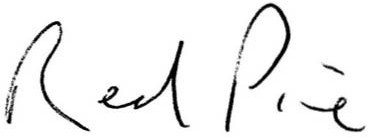 Red Pine